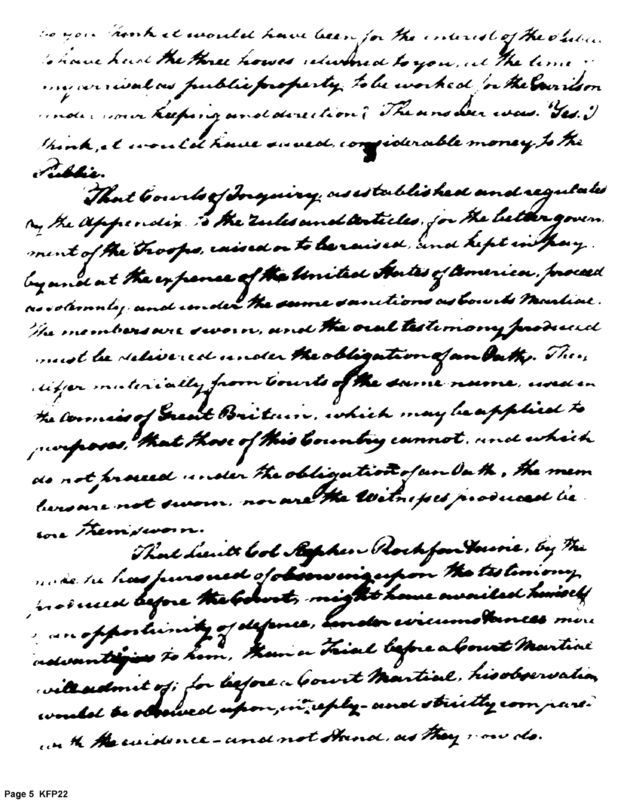 do you think it would have been for the interest of the Public
to have had the three horses returned to you, at the time
my arrival as public property, to be worked for the Garrison
under your keeping and direction? The answer was. Yes. I
think, it would have saved, considerable money, to the
Public.
That Courts of Inquiry, as established and regulated
by the Appendix, to the Rules and Articles, for the better govern
ment of the Troops, raised or to be raised, and kept in pay
by and at the expence of the United States of America, proceed
as solemnly, and under the same sanctions as Courts Martial.
The members are sworn, and the oral testimony produced
must be delivered under the obligation of an Oath. They
differ materially, from Courts of the same name, used in
the armies of Great Britain, which may be applied to
purposes, that those of this Country cannot, and which
do not proceed under the obligation of an Oath, the mem
bers are not sworn, nor are the Witnesses produced be
fore them, sworn.
That Lieutt Col Stephen Rochfontaine, by the
mode he has pursued of observing upon the testimony
produced before the Court, might have availed himself
an opportunity of defence, under circumstances more
advantageous to him, than a Trial before a Court Martial
will admit of; for before a Court Martial, his observation
would be observed upon, in reply - and strictly compared
with the evidence - and not stand, as they now do.
Page 5 KFP22